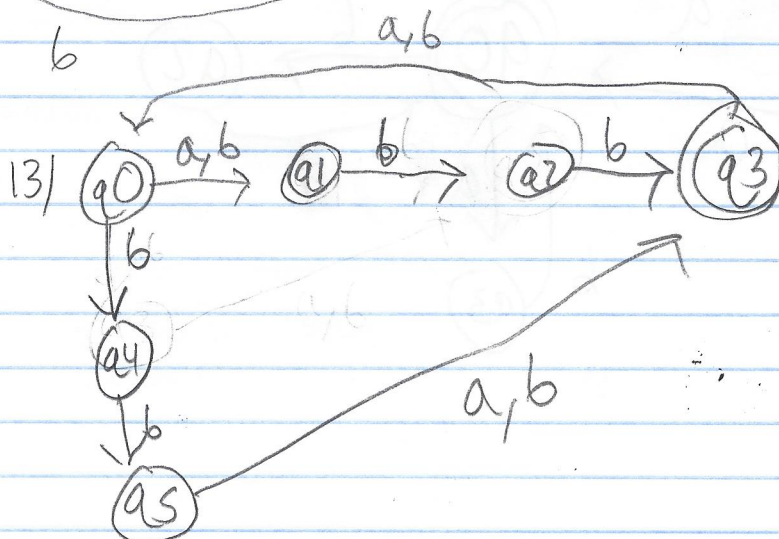 b
a,b
13) q0 a,b q1 b q2 b q3
b
q4
b
a,b
q5